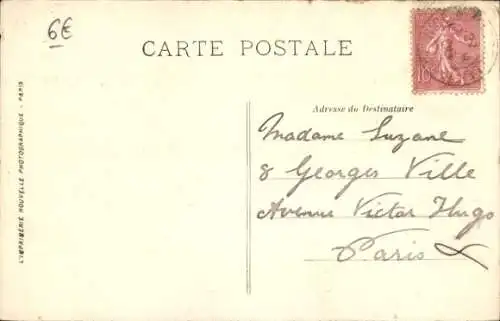 6€
CARTE POSTALE
10
Adresse du Destinataire
Madame Suzane
8 Georges Ville
Avenue Victor Hugo
Paris
L'IMPRIMERIE NOUVELLE PHOTOGRAPHIQUE - PARIS